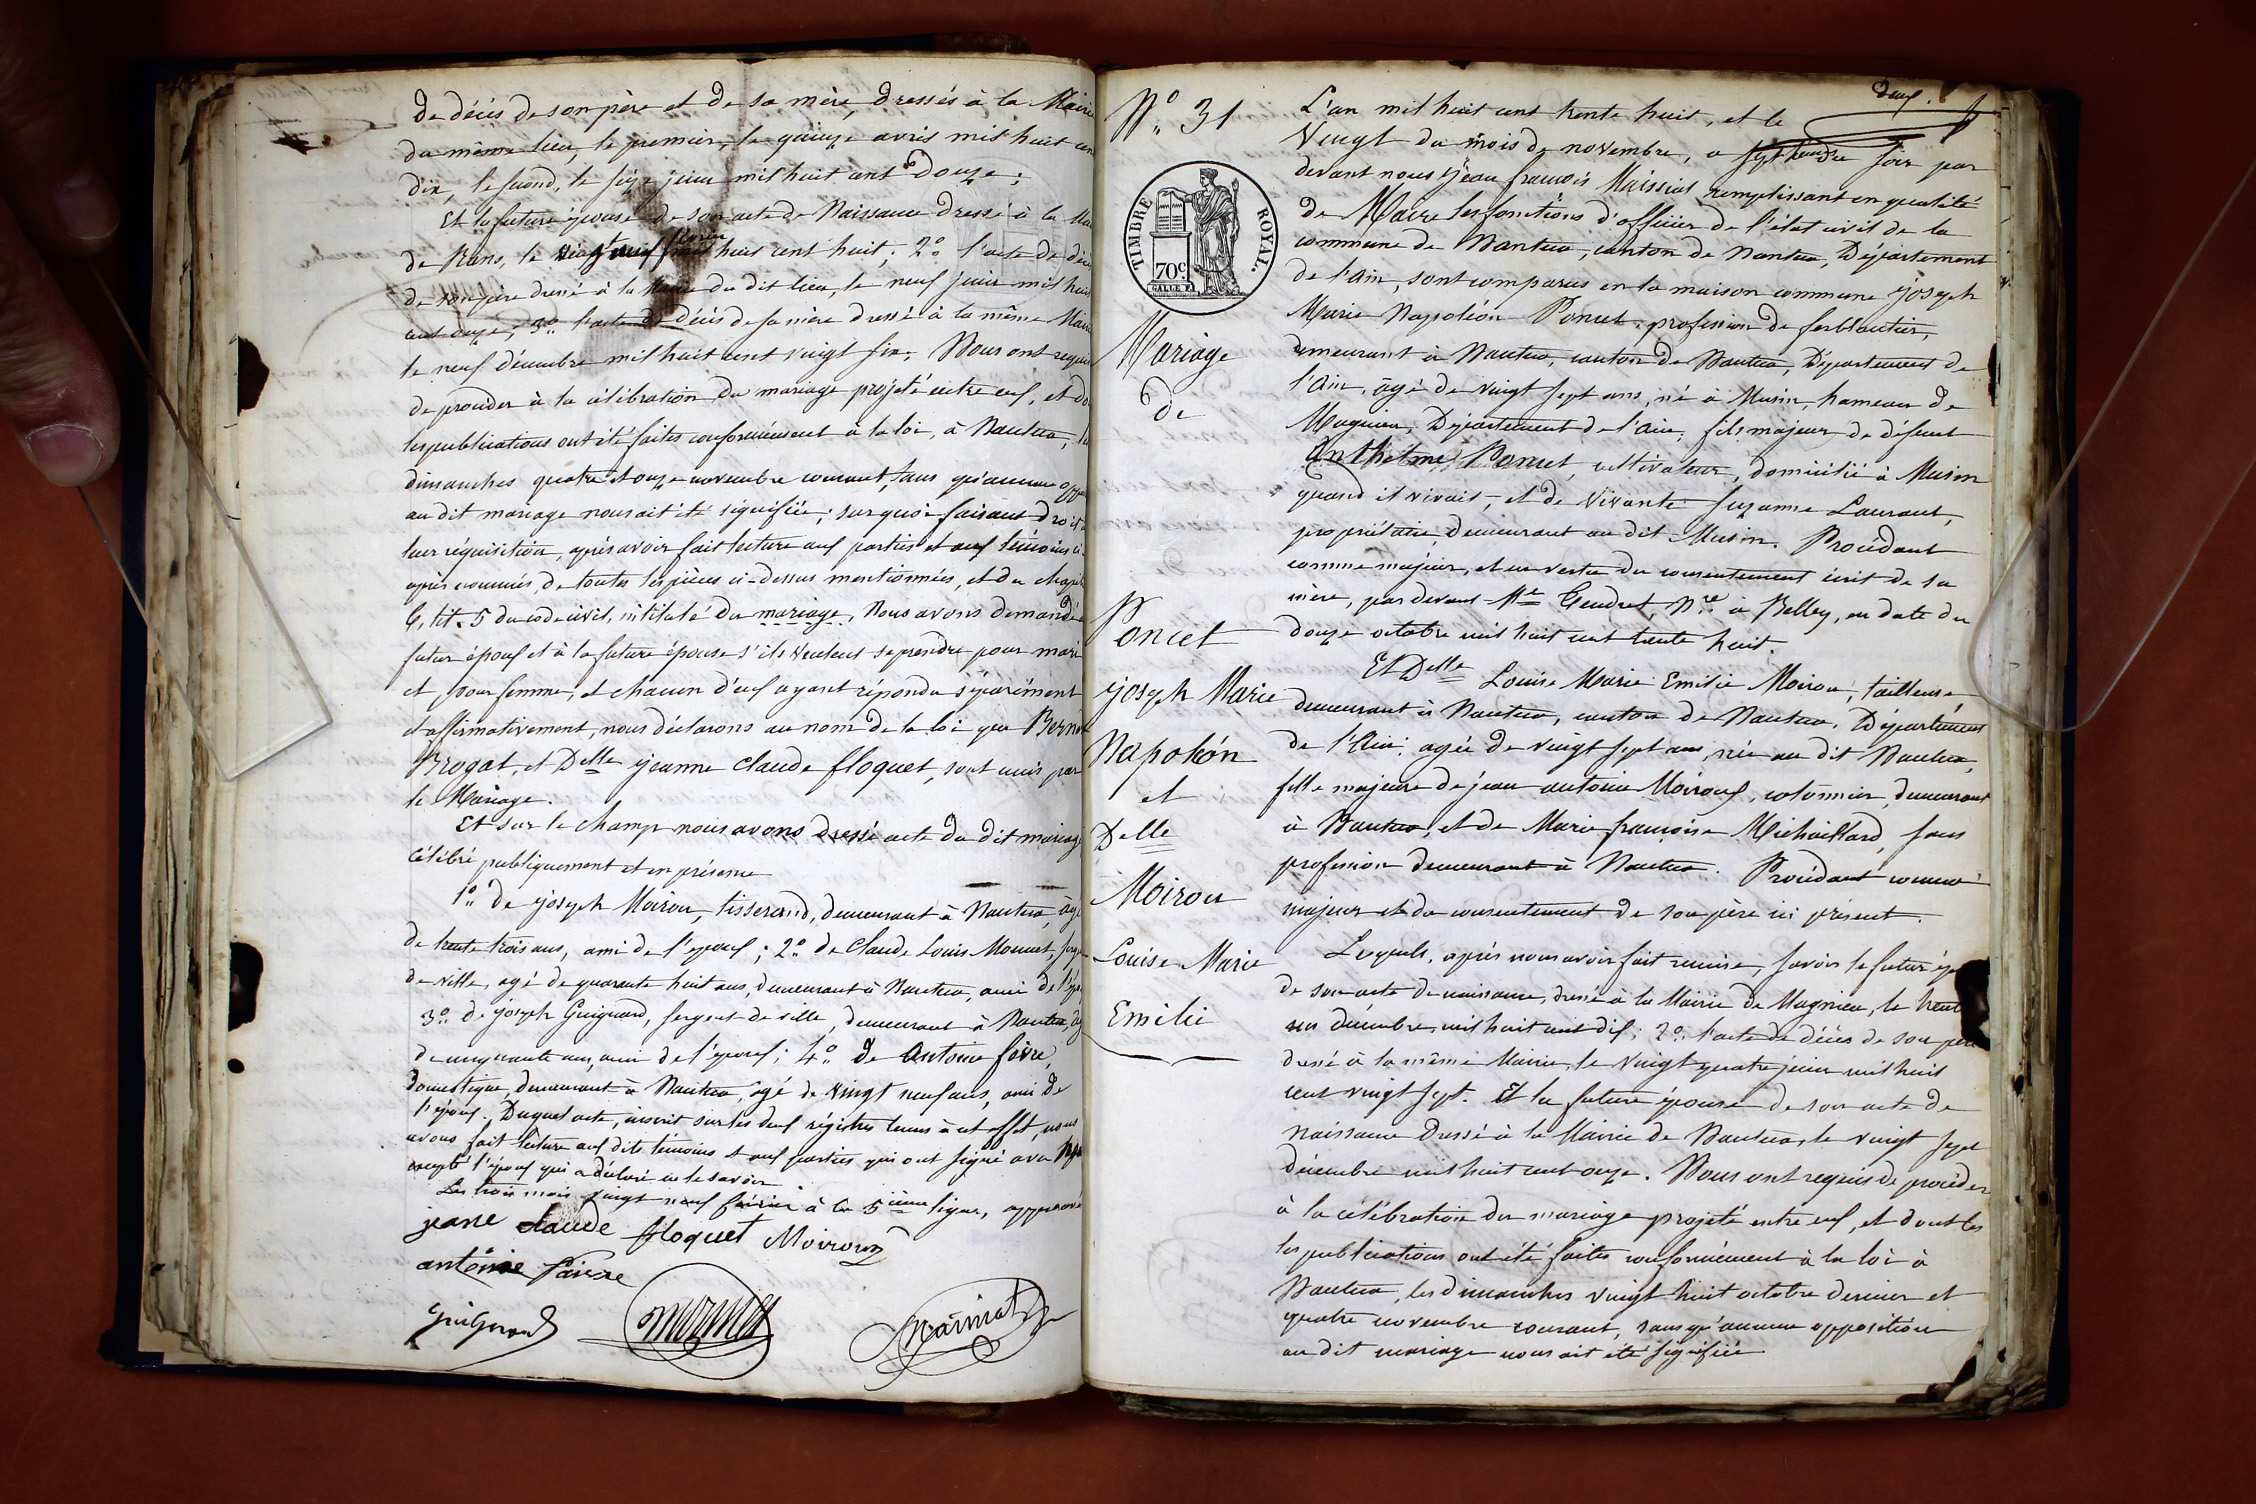 de décès de son père et de sa mère, dressés à la Mairie
du même lieu, le premier, le quinze avril mil huit cent
dix, le second, le seize juin mil huit cent douze;
Et la future épouse de son acte de Naissance dressé à la
de Rans, le vingt neuf février mil huit cent huit; 2º l'acte de décès
de son père dressé à la Mairie du dit lieu, le neuf juin mil huit
cent onze; 3º l'acte de décès de sa mère dressé à la même Mairie
le neuf décembre mil huit cent vingt six. Nous ont requis
de procéder à la célébration du mariage projeté entre eux, et dont
les publications ont été faites conformément à la loi, à Nantua, les
dimanches quatre et onze novembre courant, sans qu'aucune
au dit mariage nous ait été signifiée; sur quoi faisant droit à
leur réquisition, après avoir fait lecture aux parties et aux témoins ci-
après nommés de toutes les pièces ci-dessus mentionnées, et du chapitre
6, tit. 5 du code civil, intitulé du mariage, Nous avons demandé
futur époux et à la future épouse s'ils veulent se prendre pour mari
et pour femme, et chacun d'eux ayant répondu séparément
et affirmativement, nous déclarons au nom de la loi que
Brogat, et Delle jeanne claude floquet, sont unis par
le Mariage.
Et sur le champ nous avons dressé acte du dit mariage
célébré publiquement et en présence
1º de joseph Moirou, tisserand, demeurant à Nantua, âgé
de trente trois ans, ami de l'époux; 2º de Claude Louis Monnet,
de ville, agé de quarante huit ans, demeurant à Nantua, ami de
3º de joseph Guignard, sergent de ville, demeurant à Nantua,
de cinquante ans, ami de l'époux; 4º de Antoine favre,
domestique, demeurant à Nantua, agé de vingt neuf ans, ami de
l'époux. Duquel acte, inscrit sur les deux régistres tenus à cet effet, nous
avons fait lecture aux dits témoins et aux parties qui ont signé avec Nous
excepté l'époux qui a déclaré ne le savoir
Les trois mots vingt neuf février à la 5ième ligne, approuvé
jeane claude floquet Moiroux
antoine favre
Guignard
Nº 31
TIMBRE ROYAL.
70c.
Mariage
de
Poncet
joseph Marie
Napoléon
et
Delle
Moirou
Louise Marie
Emilie
L'an mil huit cent trente huit, et le
Vingt du mois de novembre, a sept heures du soir par
devant nous jean françois Maissiat remplissant en qualité
de Maire les fonctions d'officier de l'état civil de la
commune de Nantua, canton de Nantua, Département
de l'Ain, sont comparus en la maison commune joseph
Marie Napoléon Poncet, profession de ferblantier,
demeurant à Nantua, canton de Nantua, Département de
l'Ain, agé de vingt sept ans, né à Musin, hameau de
Magnieu, Département de l'Ain, fils majeur de défunt
Anthelme Poncet, cultivateur, domicilié à Musin
quand il vivait, et de vivante Suzanne Laurent,
propriétaire, demeurant au dit Musin. Procédant
comme majeur, et en vertu du consentement écrit de sa
mère, par devant Me Gendret, Nre à Belley, en date du
douze octobre mil huit cent trente huit.
Et Delle Louise Marie Emilie Moirou, tailleuse,
demeurant à Nantua, canton de Nantua, Département
de l'Ain, agée de vingt sept ans, née au dit Nantua,
fille majeure de jean antoine Moiroux, cotonnier, demeurant
à Nantua, et de Marie françoise Michaillard, sans
profession demeurant à Nantua. Procédant comme
majeur et du consentement de son père ici présent.
Lesquels, après nous avoir fait remise, savoir le futur
de son acte de naissance, dressé à la Mairie de Magnieu, le trente
un décembre mil huit cent dix; 2º l'acte de décès de son père
dressé à la même Mairie, le vingt quatre juin mil huit
cent vingt sept. Et la future épouse de son acte de
naissance dressé à la Mairie de Nantua, le vingt sept
décembre mil huit cent onze. Nous ont requis de procéder
à la célébration du mariage projeté entre eux, et dont les
les publications ont été faites conformément à la loi à
Nantua, les dimanches vingt huit octobre dernier et
quatre novembre courant, sans qu'aucune opposition
au dit mariage nous ait été signifiée